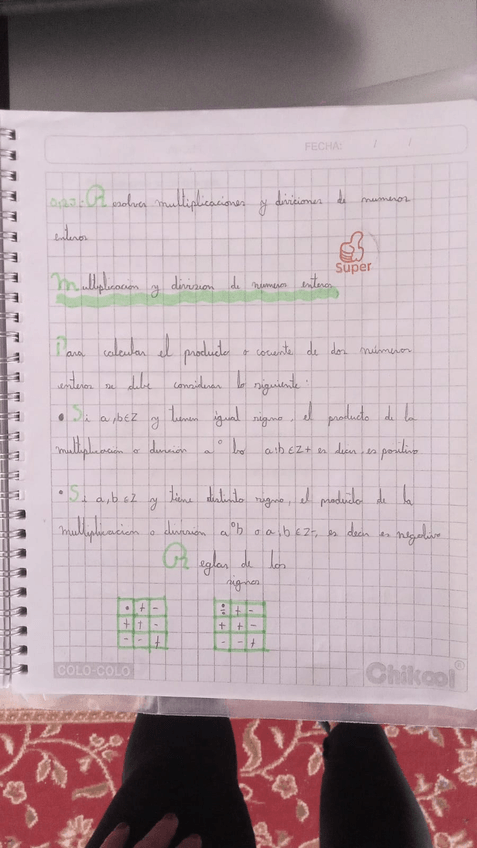 FECHA: / /
Resolver multiplicaciones y diviciones de numeros
enteros
Super
Multiplicación y division de numeros enteros
Para calcular el producto o cociente de dos números
enteros se debe considerar lo siguiente:
• Si a,b∈Z y tienen igual signo, el producto de la
multiplicación o división a° b o a:b ∈ Z+ es decir, es positivo
• Si a,b ∈ Z y tiene distinto signo, el producto de la
multiplicacion o division a°b o a:b ∈ Z-, es decir es negativo
Reglas de los
signos
• + - ÷ + -
+ + - + + -
- - + - - +
COLO-COLO Chikool®